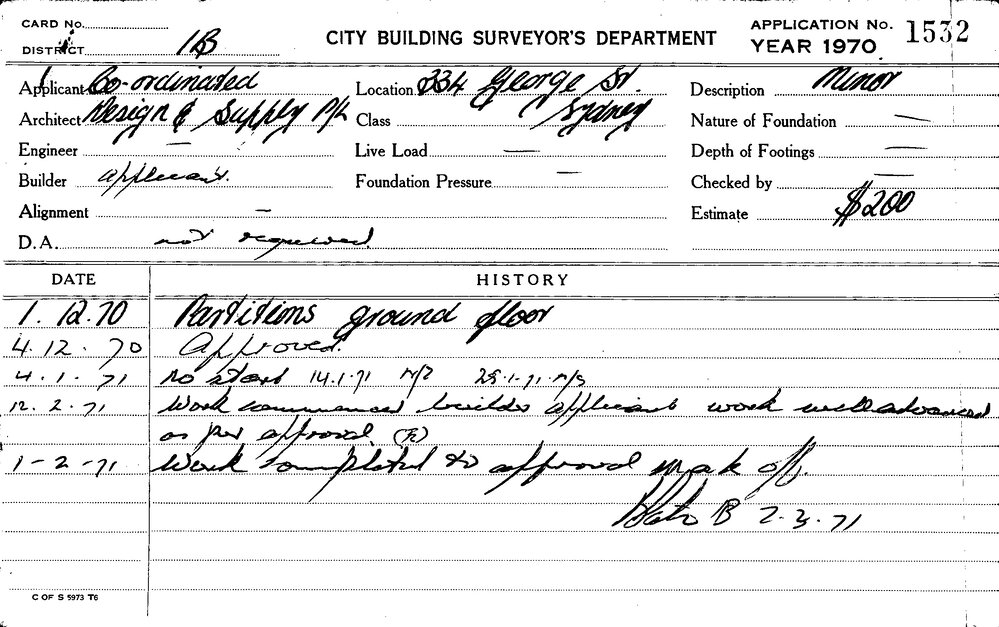 CARD No.
DISTRICT 1B
CITY BUILDING SURVEYOR'S DEPARTMENT
APPLICATION No. 1532
YEAR 1970
Applicant Co-ordinated
Location 334 George St.
Description Minor
Architect Design & Supply P/L
Class Sydney
Nature of Foundation —
Engineer —
Live Load —
Depth of Footings —
Builder applicant.
Foundation Pressure —
Checked by —
Alignment —
Estimate $200
D.A. not required.
DATE HISTORY
1.12.70 Partitions ground floor
4.12.70 Approved.
4.1.71 no start 14.1.71 N/S 29.1.71 N/S
12.2.71 Work commenced builder applicant work well advanced
as per approval.
1-2-71 Work completed to approval mark off.
B 2.3.71
C OF S 5973 T6